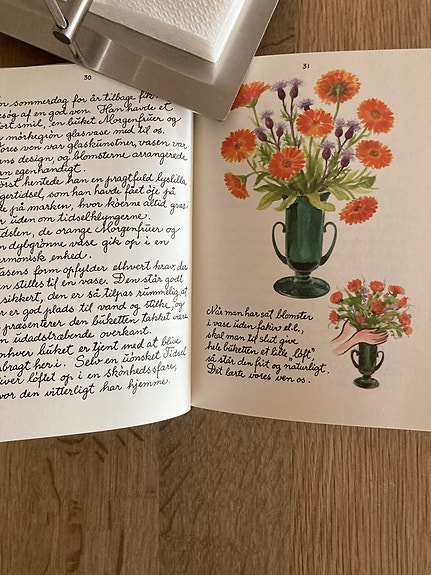 30
n sommerdag for år tilbage fik
esøg af en god ven. Han havde et
ort smil, en buket Morgenfruer og
mørkegrøn glasvase med til os.
ores ven var glaskunstner, vasen var
ens design, og blomsterne arrangerede
n egenhændigt.
ørst hentede han en pragtfuld lyslilla
gertidsel, som han havde fået øje på
e på marken, hvor køerne altid græs-
e uden om tidselklyngerne.
idslen, de orange Morgenfruer og
n dybgrønne vase gik op i en
rmonisk enhed.
asens form opfylder ethvert krav, der
n stilles til en vase. Den står godt
sikkert, den er så tilpas rummelig at
r er god plads til vand og stilke, og
præsenterer den buketten takket være
n udadstræbende overkant.
nhver buket er tjent med at blive
bragt heri. Selv en uønsket Tidsel
iver løftet op i en skønhedssfære,
vor den vitterligt har hjemme.
31
Når man har sat blomster
i vase uden fakir el.l.,
skal man til slut give
hele buketten et lille "løft",
så står den frit og naturligt.
Det lærte vores ven os.